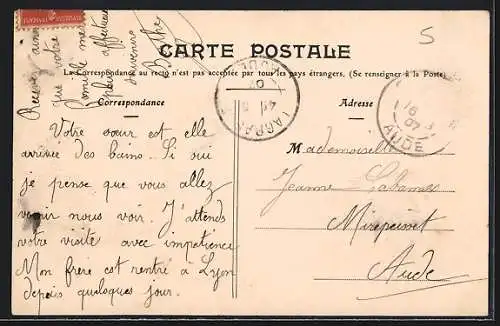 CARTE POSTALE
La correspondance au recto n'est pas acceptée par tous les pays étrangers. (Se renseigner à la Poste)
Correspondance
Adresse
Votre sœur est elle
arrivée des bains. Si oui
je pense que vous allez
venir nous voir. J'attends
votre visite avec impatience
Mon frère est rentré à Lyon
depuis quelques jour.
Recevez ainsi
que votre
famille mes
affectueux
souvenirs
Mademoiselle
Jeanne
Mirepeisset
Aude
LAGRAS
AUDE
07
AUDE
5